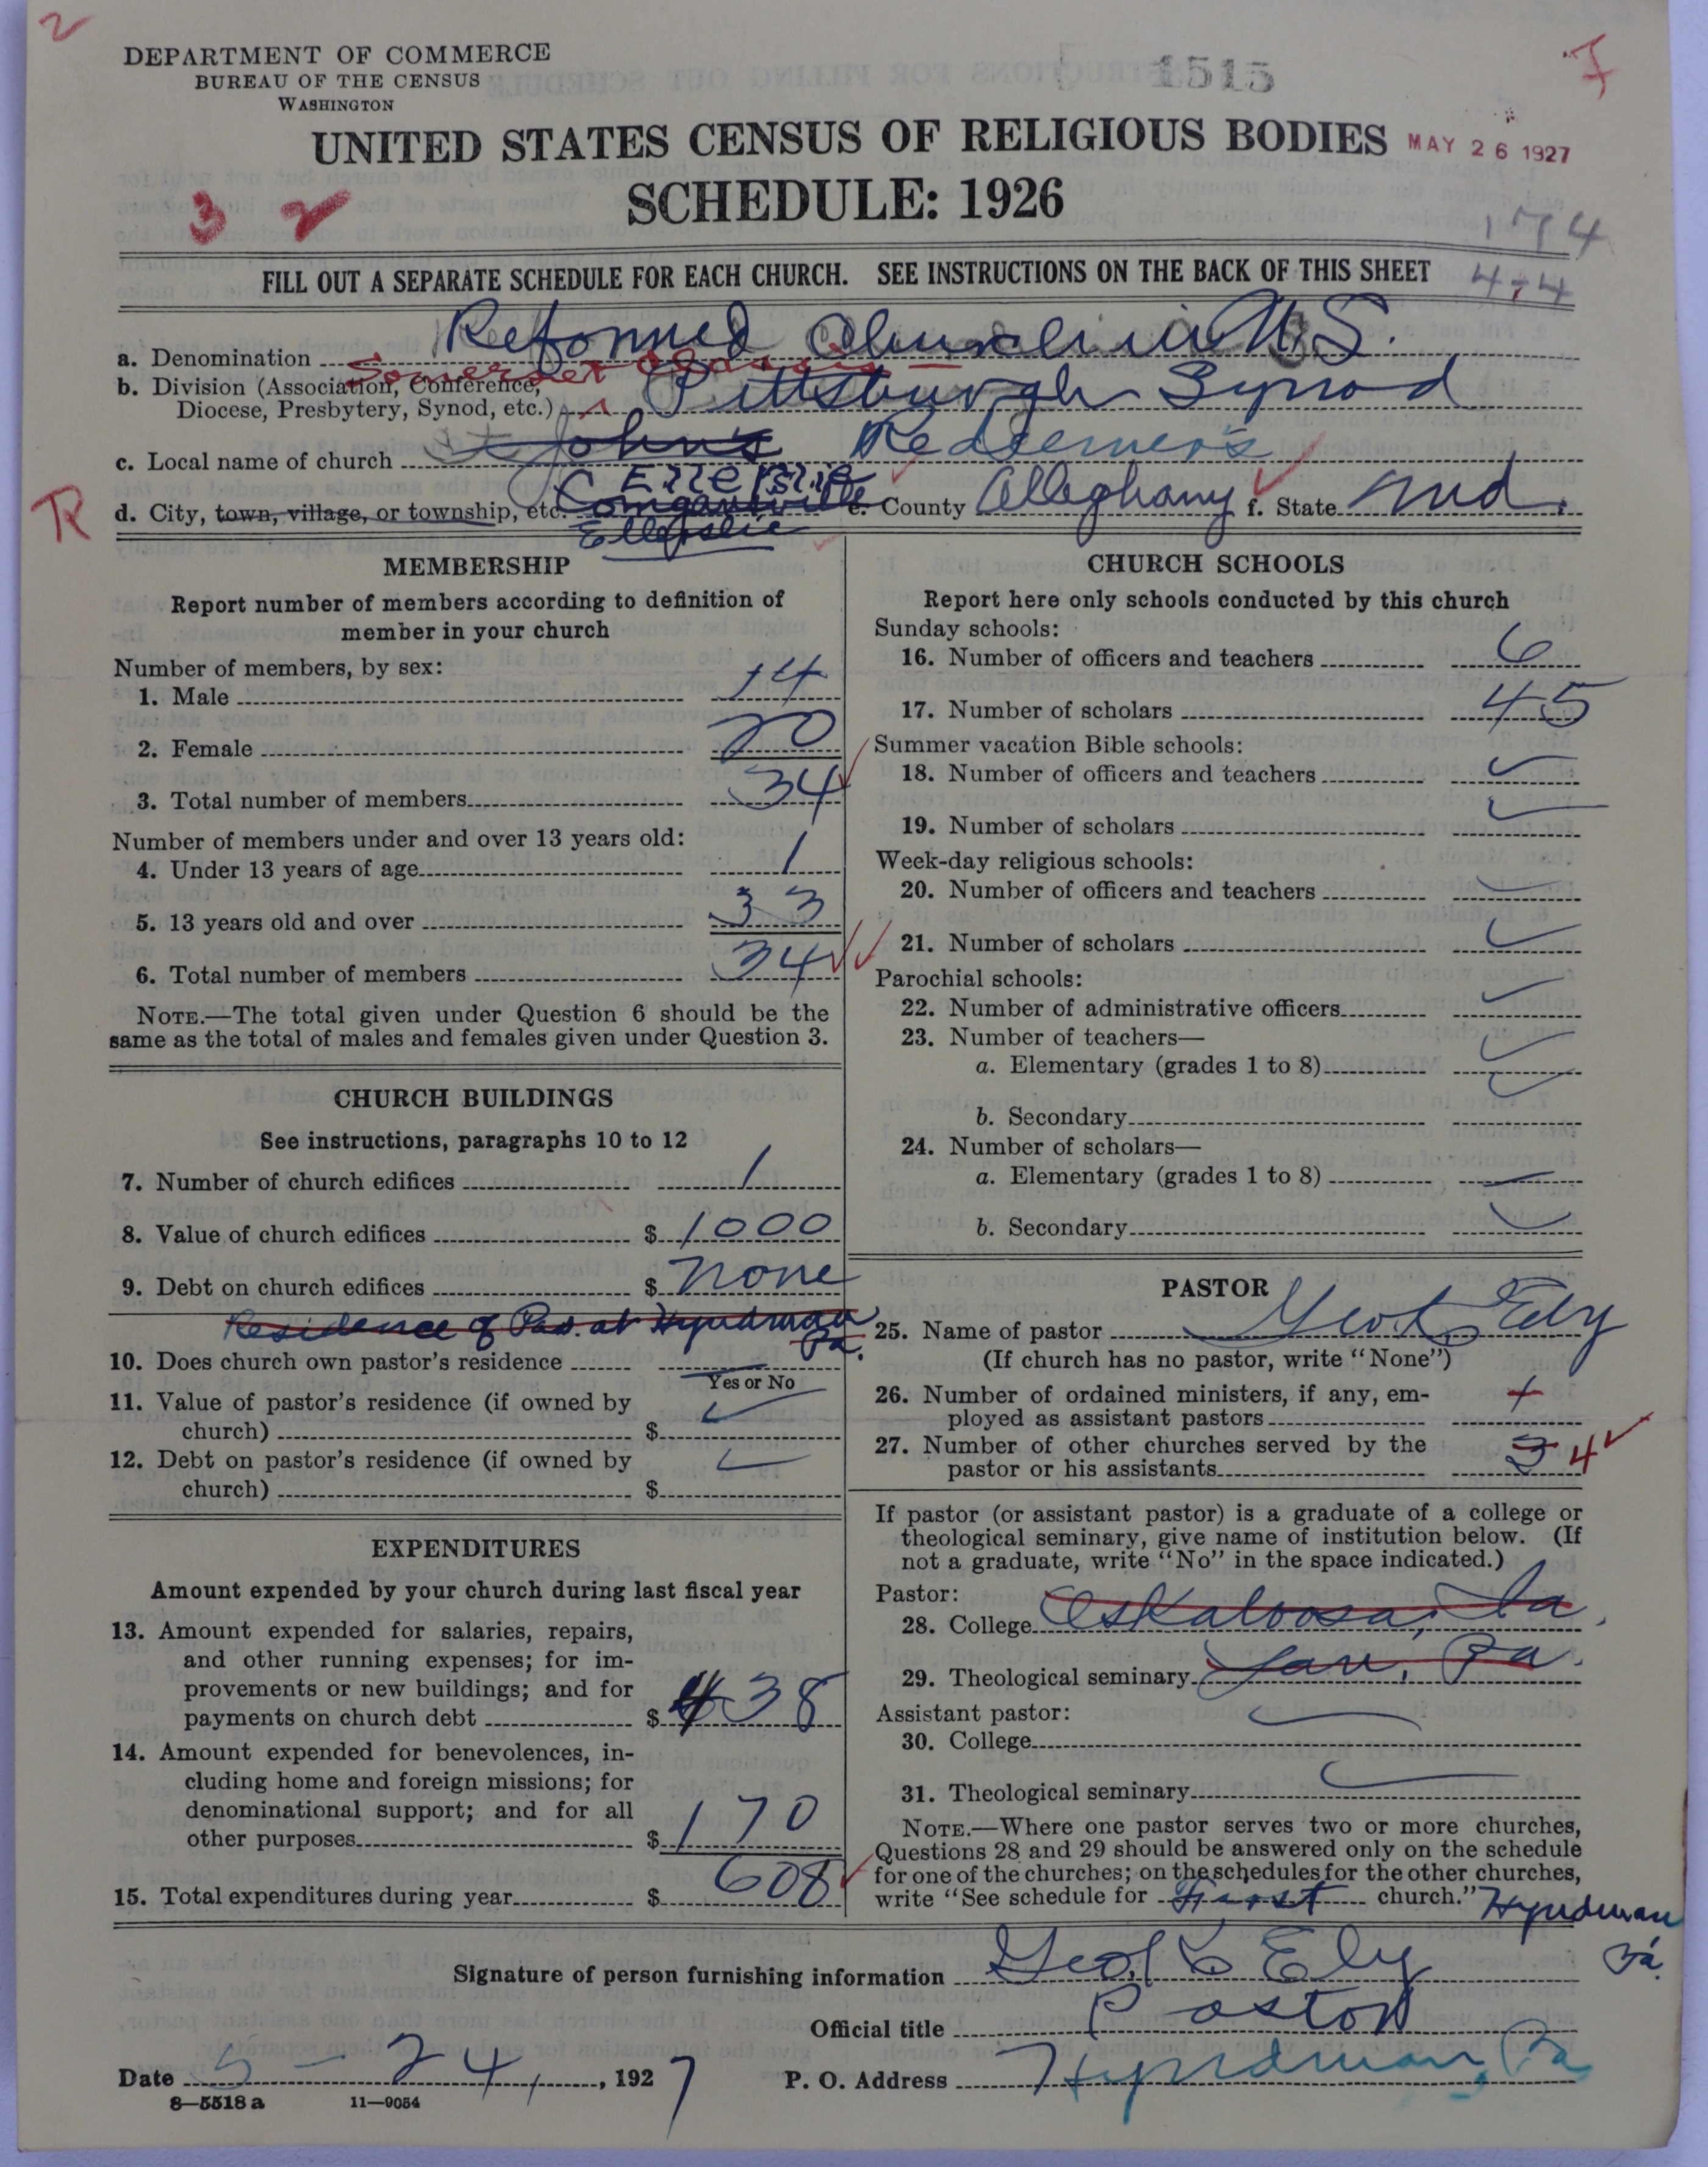 2
DEPARTMENT OF COMMERCE
BUREAU OF THE CENSUS
WASHINGTON
1515
7
UNITED STATES CENSUS OF RELIGIOUS BODIES
MAY 26 1927
SCHEDULE: 1926
3 2
174
4-4
FILL OUT A SEPARATE SCHEDULE FOR EACH CHURCH. SEE INSTRUCTIONS ON THE BACK OF THIS SHEET
a. Denomination Reformed Church in U.S.
Somerset Classis
b. Division (Association, Conference,
Diocese, Presbytery, Synod, etc.) Pittsburgh Synod
c. Local name of church St John's Redeemer's
Ellerslie
R
d. City, town, village, or township, etc. e. County Alleghany f. State Md.
Ellerslie
MEMBERSHIP
Report number of members according to definition of
member in your church
Number of members, by sex:
1. Male 14
2. Female 20
3. Total number of members 34
Number of members under and over 13 years old:
4. Under 13 years of age 1
5. 13 years old and over 33
6. Total number of members 34
NOTE.—The total given under Question 6 should be the
same as the total of males and females given under Question 3.
CHURCH BUILDINGS
See instructions, paragraphs 10 to 12
7. Number of church edifices 1
8. Value of church edifices $ 1000
9. Debt on church edifices $ none
Residence of Pas. at Hyndman
Pa.
10. Does church own pastor's residence
Yes or No
11. Value of pastor's residence (if owned by
church) $
12. Debt on pastor's residence (if owned by
church) $
EXPENDITURES
Amount expended by your church during last fiscal year
13. Amount expended for salaries, repairs,
and other running expenses; for im-
provements or new buildings; and for
payments on church debt $ 438
14. Amount expended for benevolences, in-
cluding home and foreign missions; for
denominational support; and for all
other purposes $ 170
15. Total expenditures during year $ 608
CHURCH SCHOOLS
Report here only schools conducted by this church
Sunday schools:
16. Number of officers and teachers 6
17. Number of scholars 45
Summer vacation Bible schools:
18. Number of officers and teachers
19. Number of scholars
Week-day religious schools:
20. Number of officers and teachers
21. Number of scholars
Parochial schools:
22. Number of administrative officers
23. Number of teachers—
a. Elementary (grades 1 to 8)
b. Secondary
24. Number of scholars—
a. Elementary (grades 1 to 8)
b. Secondary
PASTOR
25. Name of pastor Geo. L. Ely
(If church has no pastor, write "None")
26. Number of ordained ministers, if any, em-
ployed as assistant pastors
27. Number of other churches served by the
pastor or his assistants 3 4
If pastor (or assistant pastor) is a graduate of a college or
theological seminary, give name of institution below. (If
not a graduate, write "No" in the space indicated.)
Pastor:
28. College Oskaloosa, Ia.
29. Theological seminary Lan, Pa.
Assistant pastor:
30. College
31. Theological seminary
NOTE.—Where one pastor serves two or more churches,
Questions 28 and 29 should be answered only on the schedule
for one of the churches; on the schedules for the other churches,
write "See schedule for First church." Hyndman
Pa.
Signature of person furnishing information Geo. L. Ely
Official title Pastor
Date 5-24, 1927
P. O. Address Hyndman, Pa
8—5518 a 11—9054